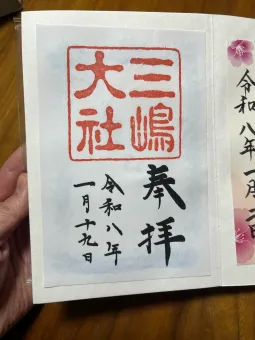 三嶋
大社
奉拝
令和八年
一月十九日
令和八年一月二日